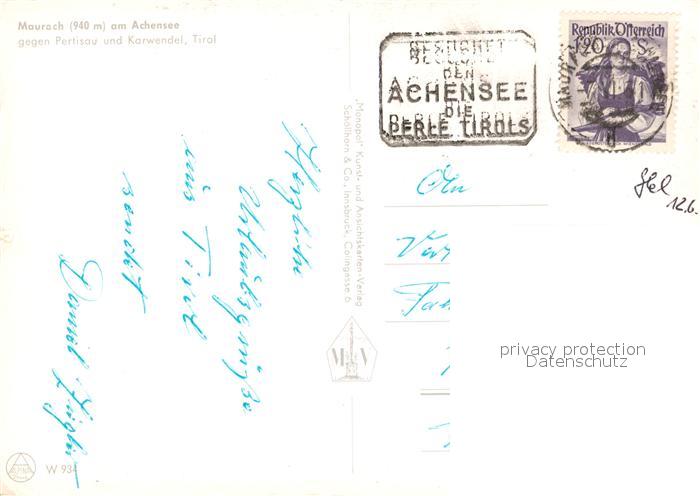 Maurach (940 m) am Achensee
gegen Pertisau und Karwendel, Tirol
BESUCHET
DEN
ACHENSEE
DIE
PERLE TIROLS
Republik Österreich
1.20 S
"Monopol" Kunst- und Ansichtskarten-Verlag
Schöllhorn & Co., Innsbruck, Colingasse 6
Herzliche
Urlaubsgrüße
aus Tirol
sendet
Daniel
An
Fam
12.6.-
M V
privacy protection
Datenschutz
ALPINA
W 934